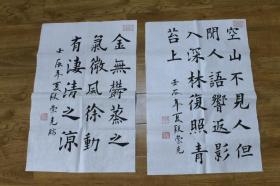 空山不見人但
聞人語響返影
入深林復照青
苔上
壬辰年夏段崇元
金無鬱蒸之
氣微風徐動
有淒清之涼
壬辰年夏段崇元